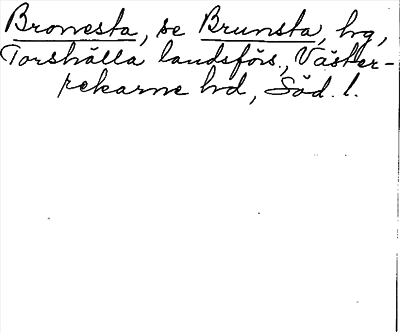 Bronesta, se Brunsta, hg,
Torshälla landsförs., Väster-
rekarne hd, Söd. l.